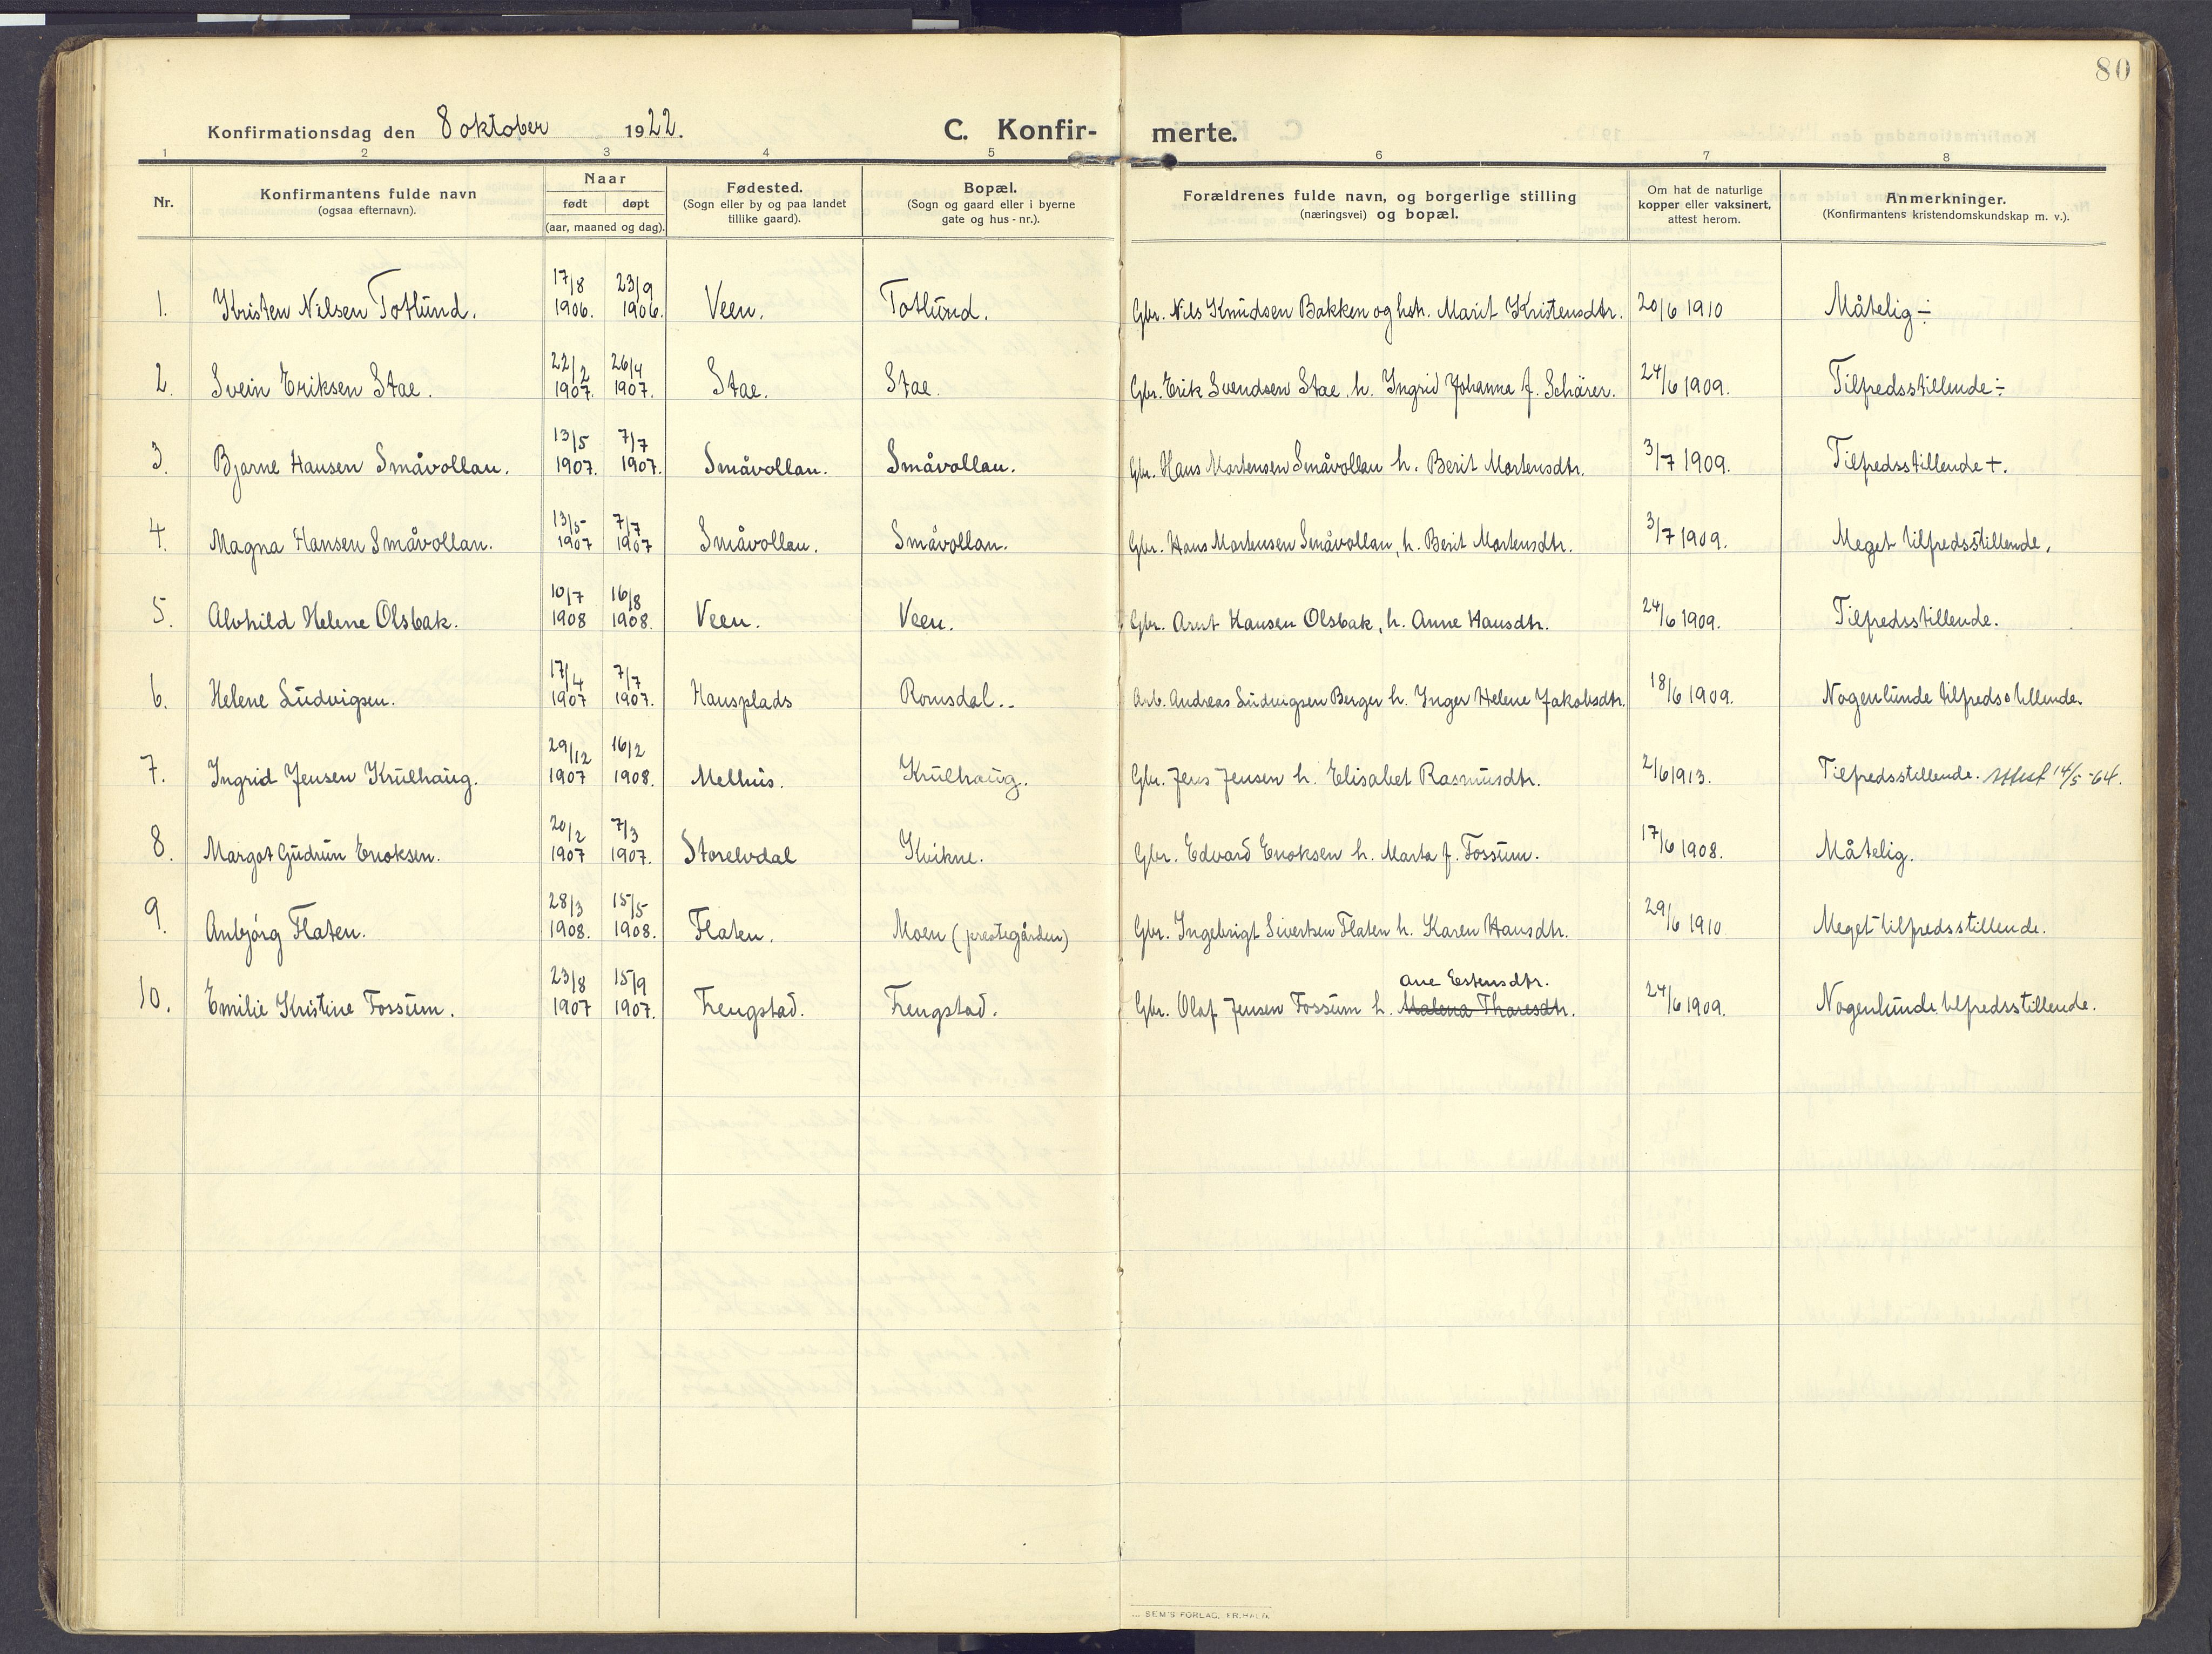 80
Konfirmationsdag den 8 oktober 1922. C. Konfir- merte.
1 2 3 4 5 6 7 8
Nr. Konfirmantens fulde navn (ogsaa efternavn). Naar født døpt (aar, maaned og dag). Fødested. (Sogn eller by og paa landet tillike gaard). Bopæl. (Sogn og gaard eller i byerne gate og hus-nr.). Forældrenes fulde navn, og borgerlige stilling (næringsvei) og bopæl. Om hat de naturlige kopper eller vaksinert, attest herom. Anmerkninger. (Konfirmantens kristendomskundskap m. v.).
1. Kristen Nilsen Totlund. 17/8 1906. 23/9 1906. Veen. Totlund. Gbr. Nils Knudsen Bakken og hstr. Marit Kristensdtr. 20/6 1910 Måtelig ÷
2. Svein Eriksen Stae. 22/2 1907. 26/4 1907. Stae. Stae. Gbr. Erik Svendsen Stae. h. Ingrid Johanna f. Schärer. 24/6 1909. Tilfredsstillende ÷
3. Bjarne Hansen Småvollan. 13/5 1907. 7/7 1907. Småvollan. Småvollan. Gbr. Hans Mortensen Småvollan h. Berit Mortensdtr. 3/7 1909. Tilfredsstillende +.
4. Magna Hansen Småvollan. 13/5 1907 7/7 1907 Småvollan. Småvollan. Gbr. Hans Mortensen Småvollan, h. Berit Mortensdtr. 3/7 1909. Meget tilfredsstillende.
5. Alvhild Helene Olsbak. 10/7 1908 16/8 1908. Veen. Veen. Gbr. Arnt Hansen Olsbak, h. Anne Hansdtr. 24/6 1909. Tilfredsstillende.
6. Helene Ludvigsen. 17/4 1907 7/7 1907. Hansplads Romsdal. Arb. Andreas Ludvigsen Berger h. Inger Helene Jakobsdtr. 18/6 1909. Nogenlunde tilfredsstillende.
7. Ingrid Jensen Krulhaug. 29/12 1907 16/2 1908. Melhus. Krulhaug. Gbr. Jens Jensen h. Elisabet Rasmusdtr. 2/6 1913. Tilfredsstillende. Attest 14/5-64.
8. Margot Gudrun Enoksen. 20/2 1907 7/3 1907. Storelvdal Kvikne. Gbr. Edvard Enoksen h. Marta f. Fossum. 17/6 1908. Måtelig.
9. Anbjørg Flaten. 28/3 1908. 15/5 1908. Flaten. Moen (prestegården) Gbr. Ingebrigt Sivertsen Flaten h. Karen Hansdtr. 29/6 1910 Meget tilfredsstillende.
Ane Estensdtr.
10. Emilie Kristine Fossum. 23/8 1907 15/9 1907. Frengstad. Frengstad. Gbr. Olaf Jensen Fossum h. Malena Tharesdtr. 24/6 1909. Nogenlunde tilfredsstillende.
SEM'S FORLAG, FR.HALD.